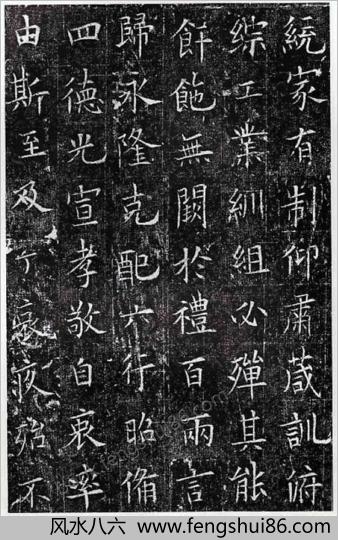 統家有制仰肅葴訓俯
综工業紃組必殫其能
無闕於禮百兩言
歸永隆克配六行昭俻
四德光宣孝敬自衷率
由斯至及丁哀疚殆不
风水八六 www.fengshui86.com